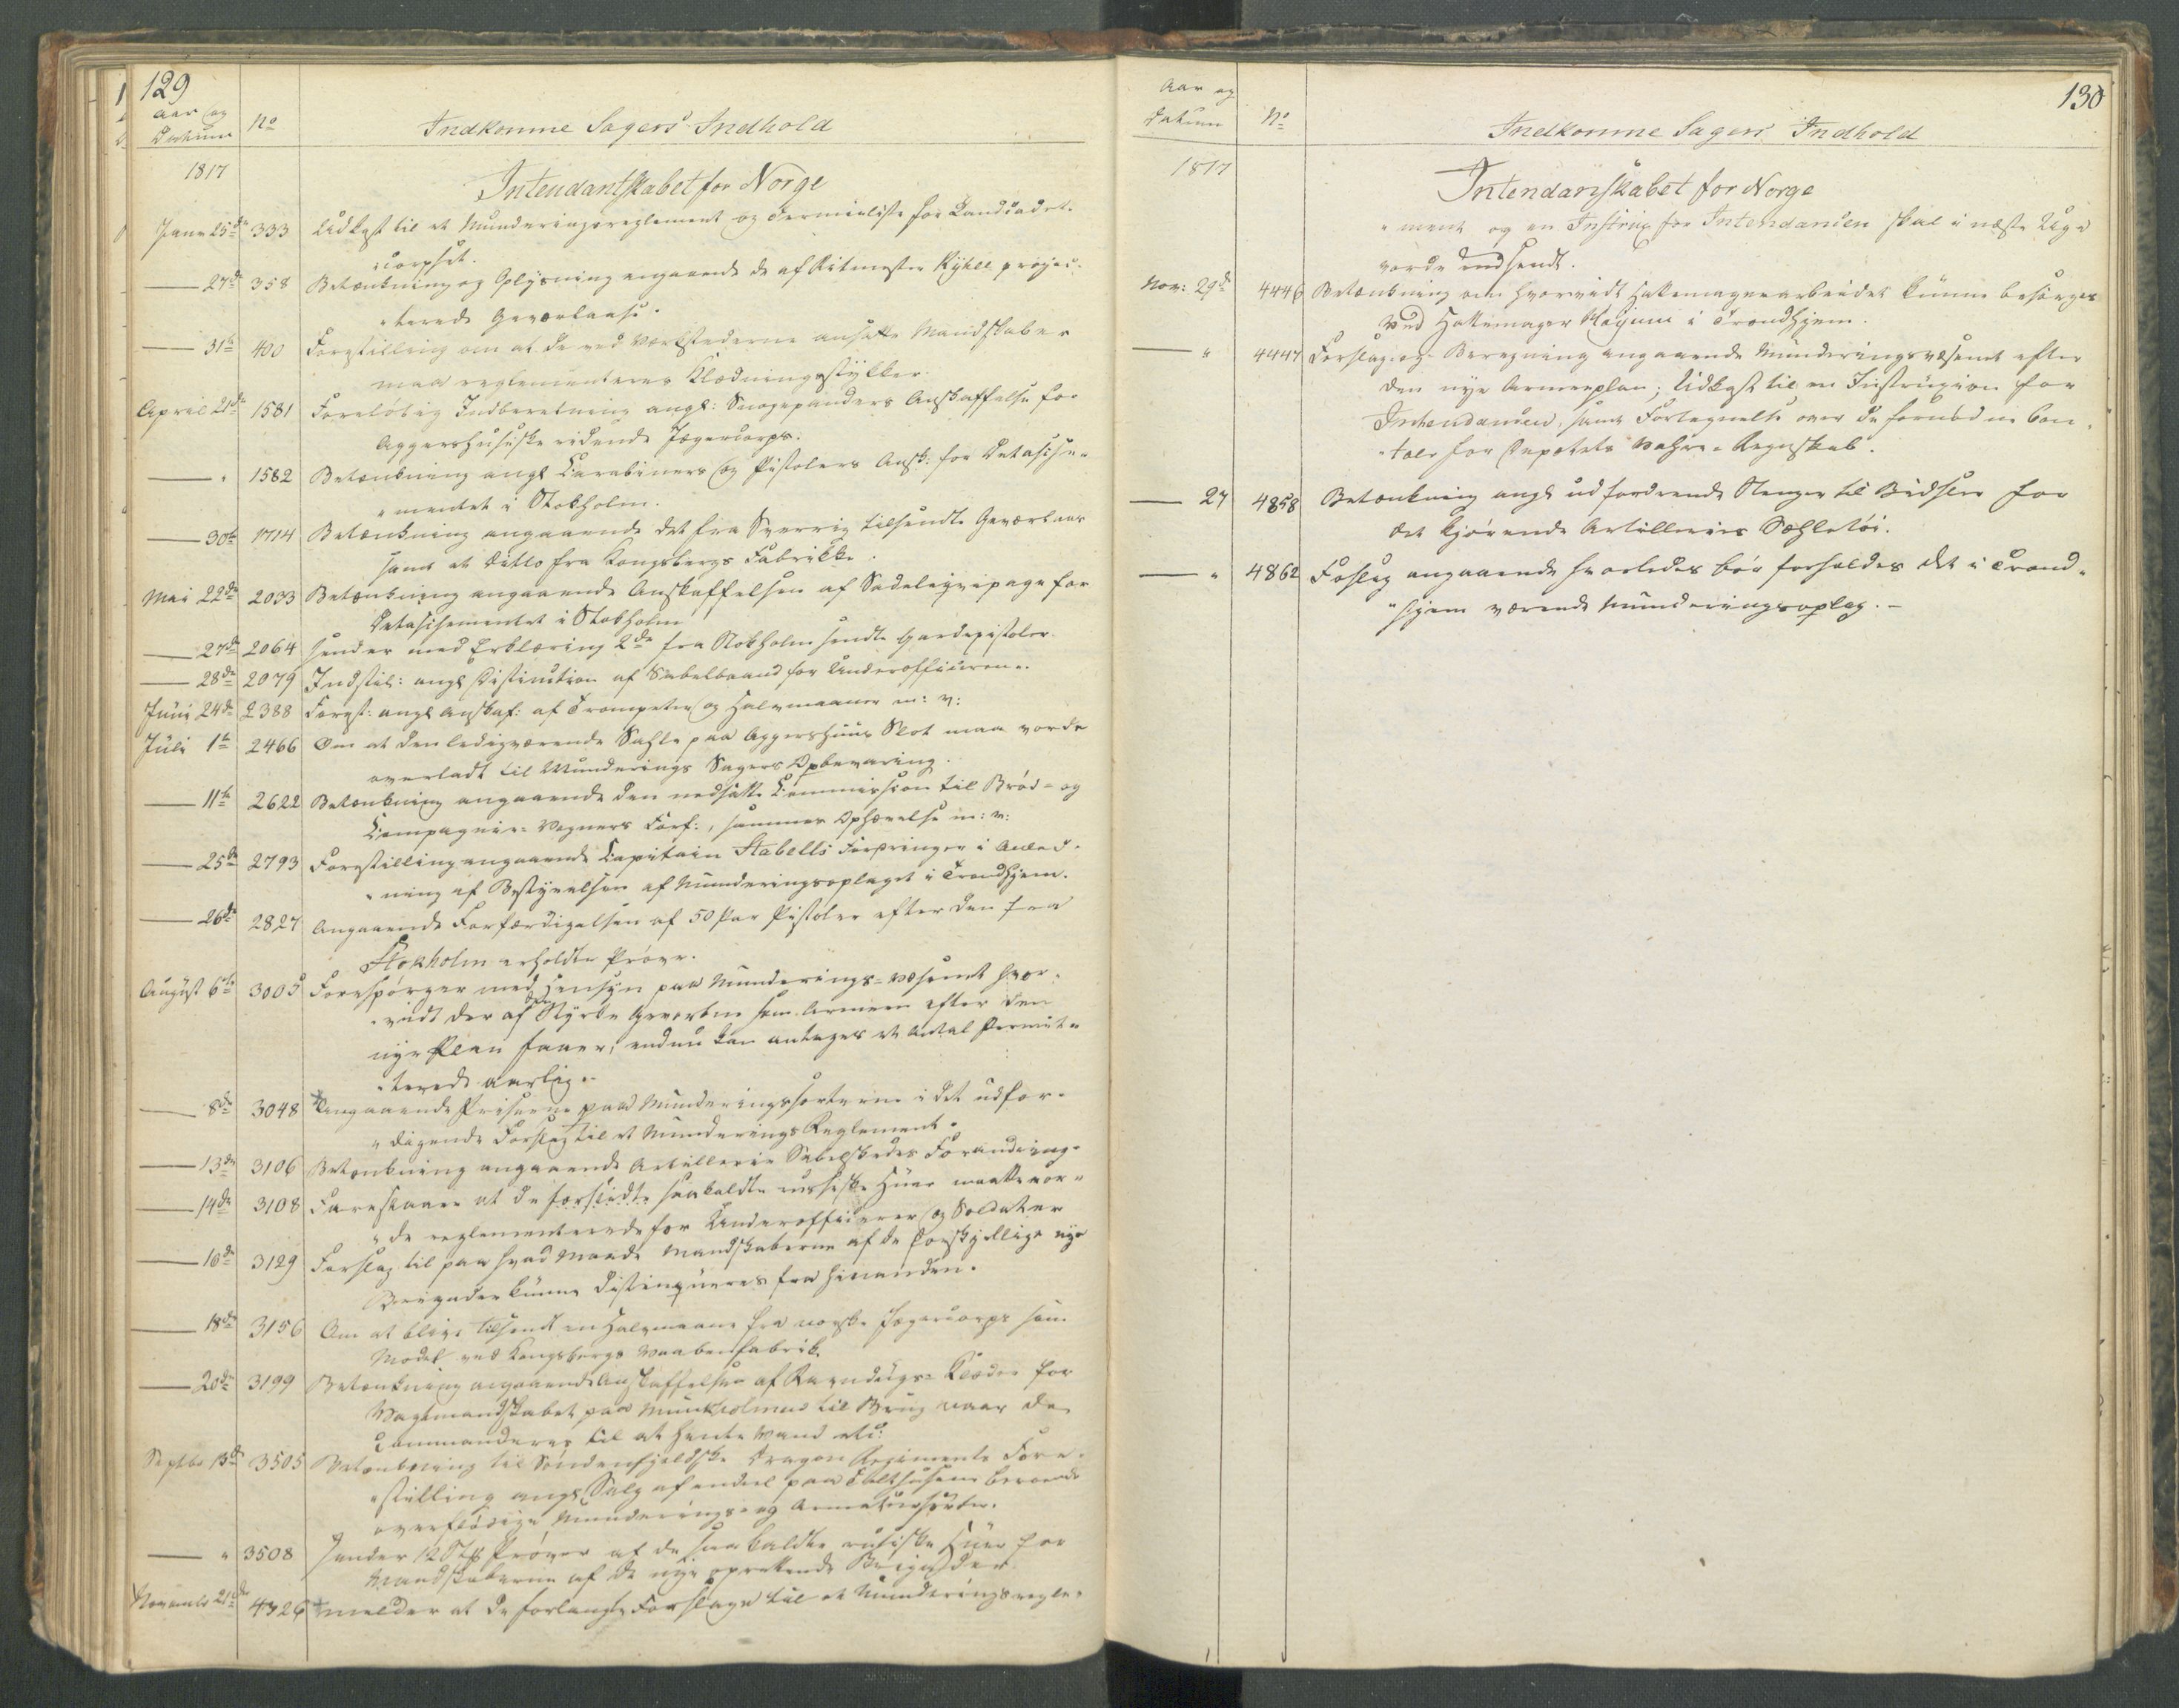 129
Aar og
Datum
No
Indkomne Sagers Indhold
1817
Intendantskabet for Norge
Janu 25de 333 Udkast til et Munderingsreglement og Terminliste for Landcadet-
corpset.
27de 358 Betænkning og Oplysning angaaende de af Ritmester Ryhll projec-
terede Geværlaase.
31te 400 Forestilling om at de ved Værkstederne ansatte Mandskaber
maa reglementeres Klædningsstykker.
April 21de 1581 Foreløbig Indberetning angl: Anskaffelse for
Aggershuusiske ridende Jægercorps.
" 1582 Betænkning angl Carabiners og Pistolers Ansk: for Detasche-
mentet i Stokholm.
30te 1714 Betænkning angaaende det fra Sverrig tilsendte Geværlaas
samt et ditto fra Kongsbergs Fabrikke.
Mai 22de 2033 Betænkning angaaende Anskaffelsen af Sadeleqvipage for
Detaschementet i Stokholm
27de 2064 sender med Erklæring 2de fra Stokholm sendte Gardepistoler.
28de 2079 Indstil: angl Distinction af Sabelbaand for Underofficerer.
Juni 24de 2388 Forest: angl Anskaf: af Trompeter og Halvmaaner m: v:
Juli 1te 2466 Om at den ledigværende Sahl paa Aggershuus Slot maa vorde
overladt til Munderings Sagers Opbevaring.
11te 2622 Betænkning angaaende den nedsatte Commission til Brød- og
Compagnie- Vogners Forf:, sammes Ophævelse m: v:
25de 2793 Forestilling angaaende Capitain Stabells Fordringer i Anled-
ning af Bestyrelsen af Munderingsoplaget i Trondhjem.
26de 2827 Angaaende Forfærdigelsen af 50 Par Pistoler efter den fra
Stokholm erholdte Prøve.
August 6te 3005 Forespørger med Hensyn paa Munderings-Væsenet hvor-
vidt der af den Styrke Geworbne som Armeen efter den
nye Plan faaer, endnu kan antages et Antal Permit-
terede aarlig.
8de 3048 Angaaende Priserne paa Munderingssorterne i det udfær-
digende Forslag til et Munderings Reglement.
13de 3106 Betænkning angaaende Artillerie Sabelskeders Forandring.
14de 3108 Foreslaaer at de forslidte saakaldte russiske Huer maatte vor-
de reglementerede for Underofficerer og Soldater
16de 3129 Forslag til paa hvad Maade Mandskaberne af de forskjellige nye
Brigader kunne distinqueres fra hinanden.
18de 3156 Om at blive tilsendt en Halvmaane fra norske Jægercorps som
Model ved Kongsbergs Vaabenfabrik.
20de 3199 Betænkning angaaende Anskaffelsen af Ravndugs- Klæder for
Vagtmandskabet paa Munkholmen til Brug naar de
commanderes til at hente Vand etc:
Septbr 13de 3505 Betænkning til Søndenfjeldske Dragon Regiments Fore-
stilling angl Salg af endeel paa beroende
overflødige Munderings- og Armatursorter.
" 3508 sender 12 Stk Prøver af de saa kaldte rusiske Huer for
Mandskaberne af de nye oprettende Brigader
November 21de 4326 melder at de forlangte Forslage til et Munderingsregle-
130
Aar og
Datum
No
Indkomne Sagers Indhold
1817
Intendanskabet for Norge
ment og en Instrux for Intendancen skal i næste Uge
vorde indsendt.
Nov: 29de 4446 Betænkning om hvorvidt Hattemagerarbeidet kunne besørges
ved Hattemager i Trondhjem.
" 4447 Forslag- og Beregning angaaende Munderingsvæsenet efter
den nye Armeeplan; Udkast til en Instruxion for
Intendancen, samt Fortegnelse over de fornødne Con-
toer for Depotets Vahre- Regnskab.
27 4858 Betænkning angl udfordrende Stænger til Bidsler for
det kjørende Artilleries Sæhletøi.
" 4862 Foslag angaaende hvorledes bør forholdes det i Trond-
hjem værende Munderingsoplag.